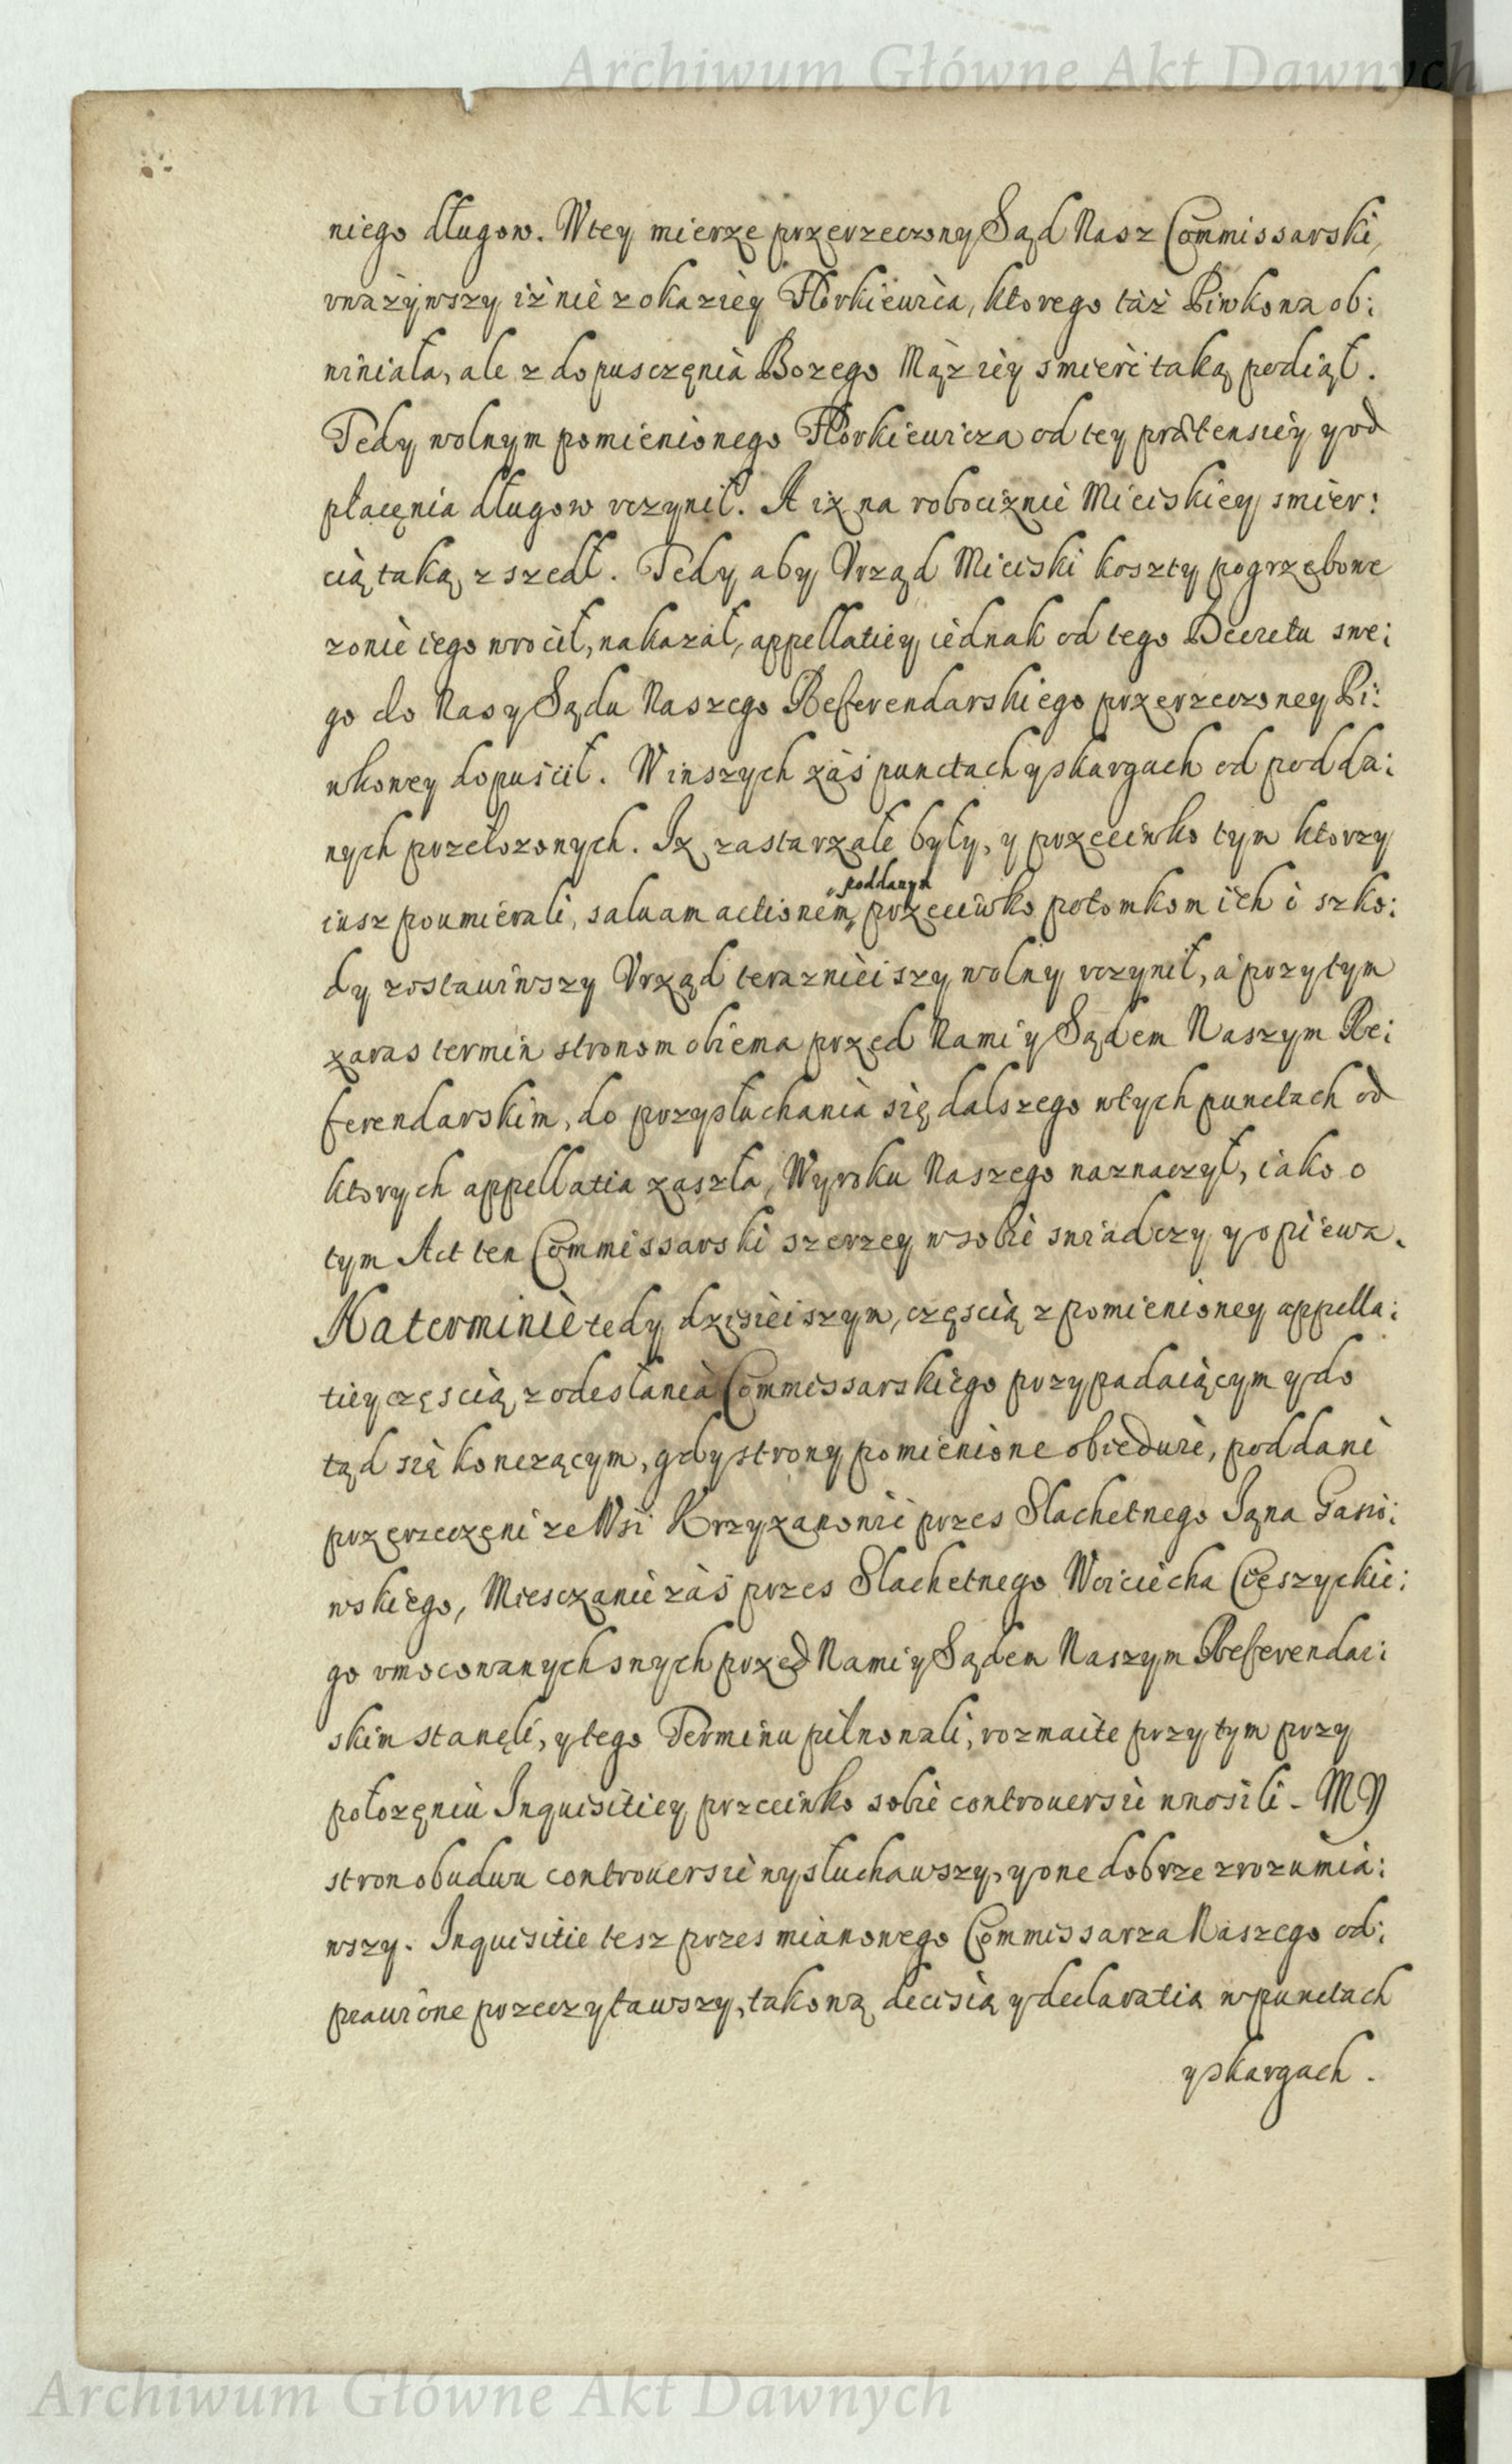 Archiwum Główne Akt Dawnych
niego długow. Wtey mierze przerzeczony Sąd Nasz Commissarski,
vważywszy iż nie z okaziey Florkiewica, ktorego taż Piwkowa ob:
winiała, ale z dopusczęnia Bozego Mąz iey smierc taką podiął.
Tedy wolnym pomienionego Florkiewicza od tey prætensiey y od
płacęnia długow vczynił. A iz na robociznie Mieiskiey smier:
cią taką zszedł. Tedy aby Vrząd Mieiski koszty pogrzębowe
zonie iego wrocił, nakazał, appellatiey iednak od tego Decretu swe:
go do Nas y Sądu Naszego Referendarskiego przerzeczoney Pi:
wkowey dopuścił. W inszych zaś punctach y skargach od podda:
nych przełozonych. Iz zastarzałe były, y przeciwko tym ktorzy
iusz poumierali, saluam actionem poddanym przeciwko potomkom ich o szko:
dy zostawiwszy Vrząd terazniejszy wolny vczynił, a przytym
zaras termin stronom obiema przed Nami y Sądem Naszym Re:
ferendarskim, do przysłuchania się dalszego wtych punctach od
ktorych appellatia zaszła, Wyroku Naszego naznaczył, iako o
tym Act ten Commissarski szerzey w sobie swiadczy y opiewa.
Na terminie tedy dzisieiszym, częscią z pomienioney appella:
tiey częscią z odesłania Commissarskiego przypadaiącym y do
tąd się konczącym, gdy strony pomienione obiedwie, poddani
przerzeczęni ze Wsi Krzyzanowic przes Slachetnego Iana Gasio:
wskiego, Miesczanie zaś przes Slachetnego Woiciecha Cieszyckie:
go vmocowanych swych przed Nami y Sądem Naszym Referendar:
skim stanęli, y tego Terminu pilnowali, rozmaite przy tym przy
połozęniu Inquisitiey przeciwko sobie controuersie wnosili. MY
stron obudwu controuersie wysłuchawszy, y one dobrze zrozumia:
wszy. Inquisitie tesz przes mianowego Commissarza Naszego od:
prawione przeczytawszy, takową decisią y declaratią w punctach
y skargach.
Archiwum Główne Akt Dawnych